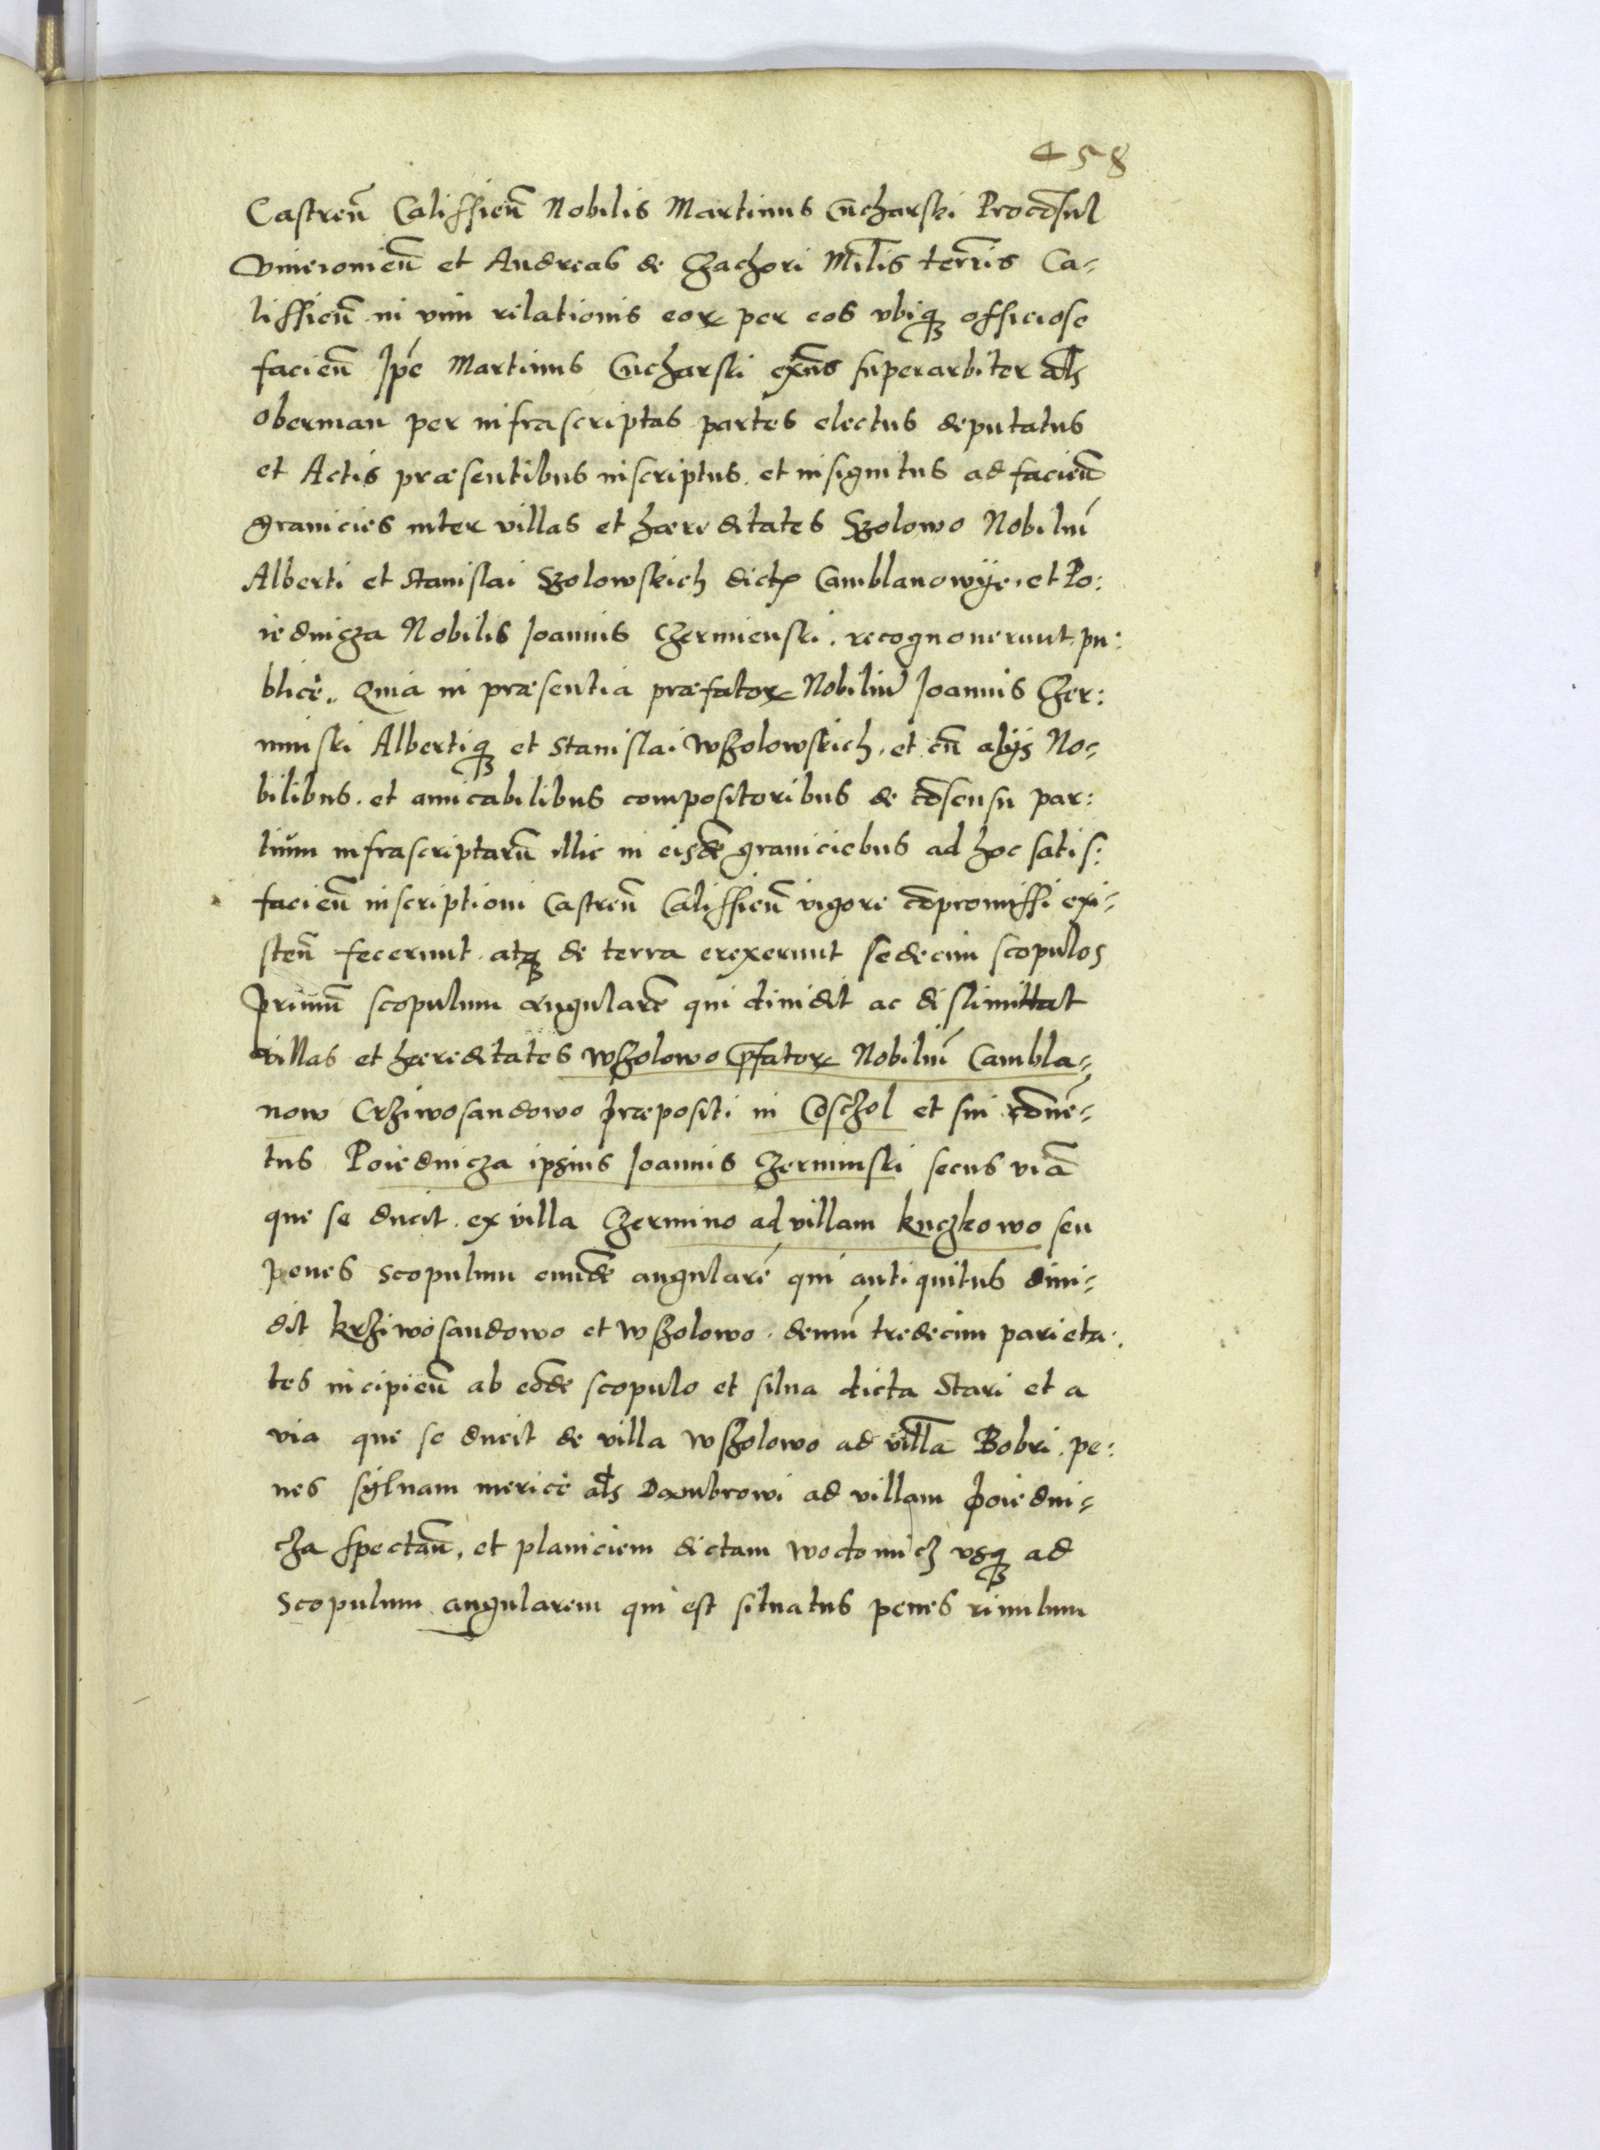 458
Castreñ Calissieñ Nobilis Martinus Cucharski Procõsul
Vnieiouieñ et Andreas de Czachori Mĩlis terr̃is Ca-
lissieñ in vim relationis eoꝝ per eos vbiqꝫ officiose
facieñ Ipẽ Martinus Cucharski exñs superarbiter al̃s
oberman per infrascriptas partes electus deputatus
et Actis præsentibus inscriptus et insignitus ad facieñ
granicies inter villas et hæreditates Wszolowo Nobiliũ
Alberti et Stanislai Wszolowskich dict. Camblanowije. et Po:
iednicza Nobilis Joannis Czermienski. recognouerunt pu:
blicè. Quia in præsentia præfatoꝝ Nobiliũ Joannis Czer:
minski Albertiqꝫ et Stanislai Wszolowskich. et cũ alijs No-
bilibus. et amicabilibus compositoribus de cõsensu par:
tium infrascriptarũ illic in eisdẽ graniciebus ad hoc satis:
facieñ inscriptioni Castreñ Calissieñ vigore cõpromissi exi-
steñ fecerunt atqꝫ de terra erexerunt sedecim scopulos
Primũ scopulum angularẽ qui diuidit ac dislimittat
villas et hæreditates Wszolowo p̃fatoꝝ Nobiliũ Cambla-
now Crziwosandowo Præpositi in Coschol et sui cõuẽ-
tus Poiednicza ipsius Joannis Czerminski secus viã
que se ducit ex villa Czermino ad villam Kuczkowo seu
penes scopulum eundẽ angularẽ qui antiquitus diui-
dit Krziwosandowo et Wszolowo. demũ tredecim parieta:
tes incipieñ ab eõdẽ scopulo et silua dicta Stari et a
via que se ducit de villa Wszolowo ad villã Bobri pe:
nes syluam mericè al̃s Dambrowi ad villam Poiedni-
cza spectañ. et planiciem dictam Wodomicz vsqꝫ ad
scopulum angularem qui est situatus penes riuulum